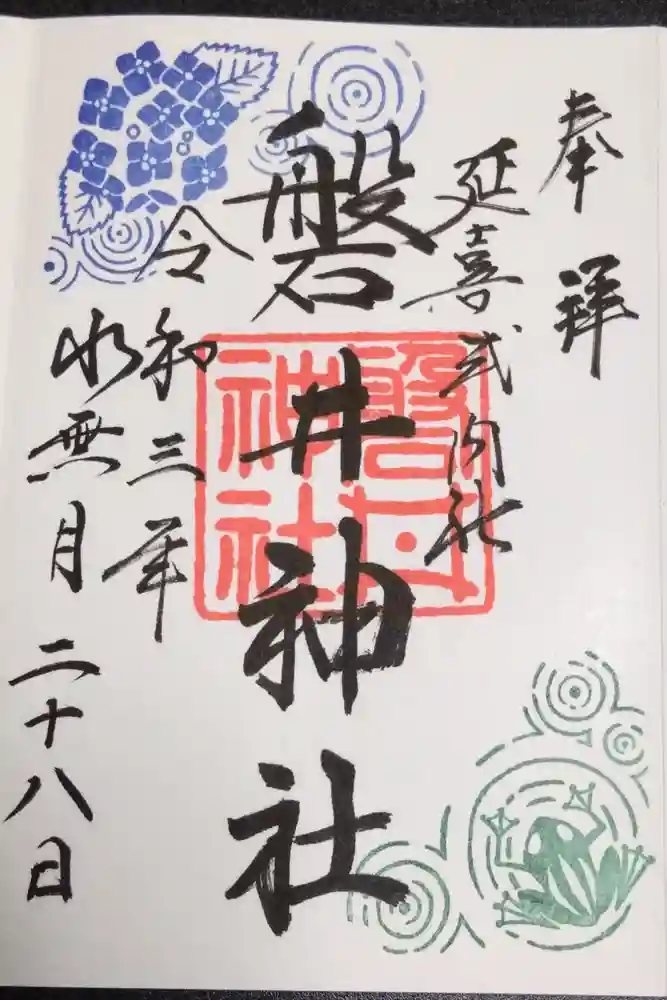 奉拝
延喜式内社
磐井神社
磐井
神社
令和三年
水無月二十八日